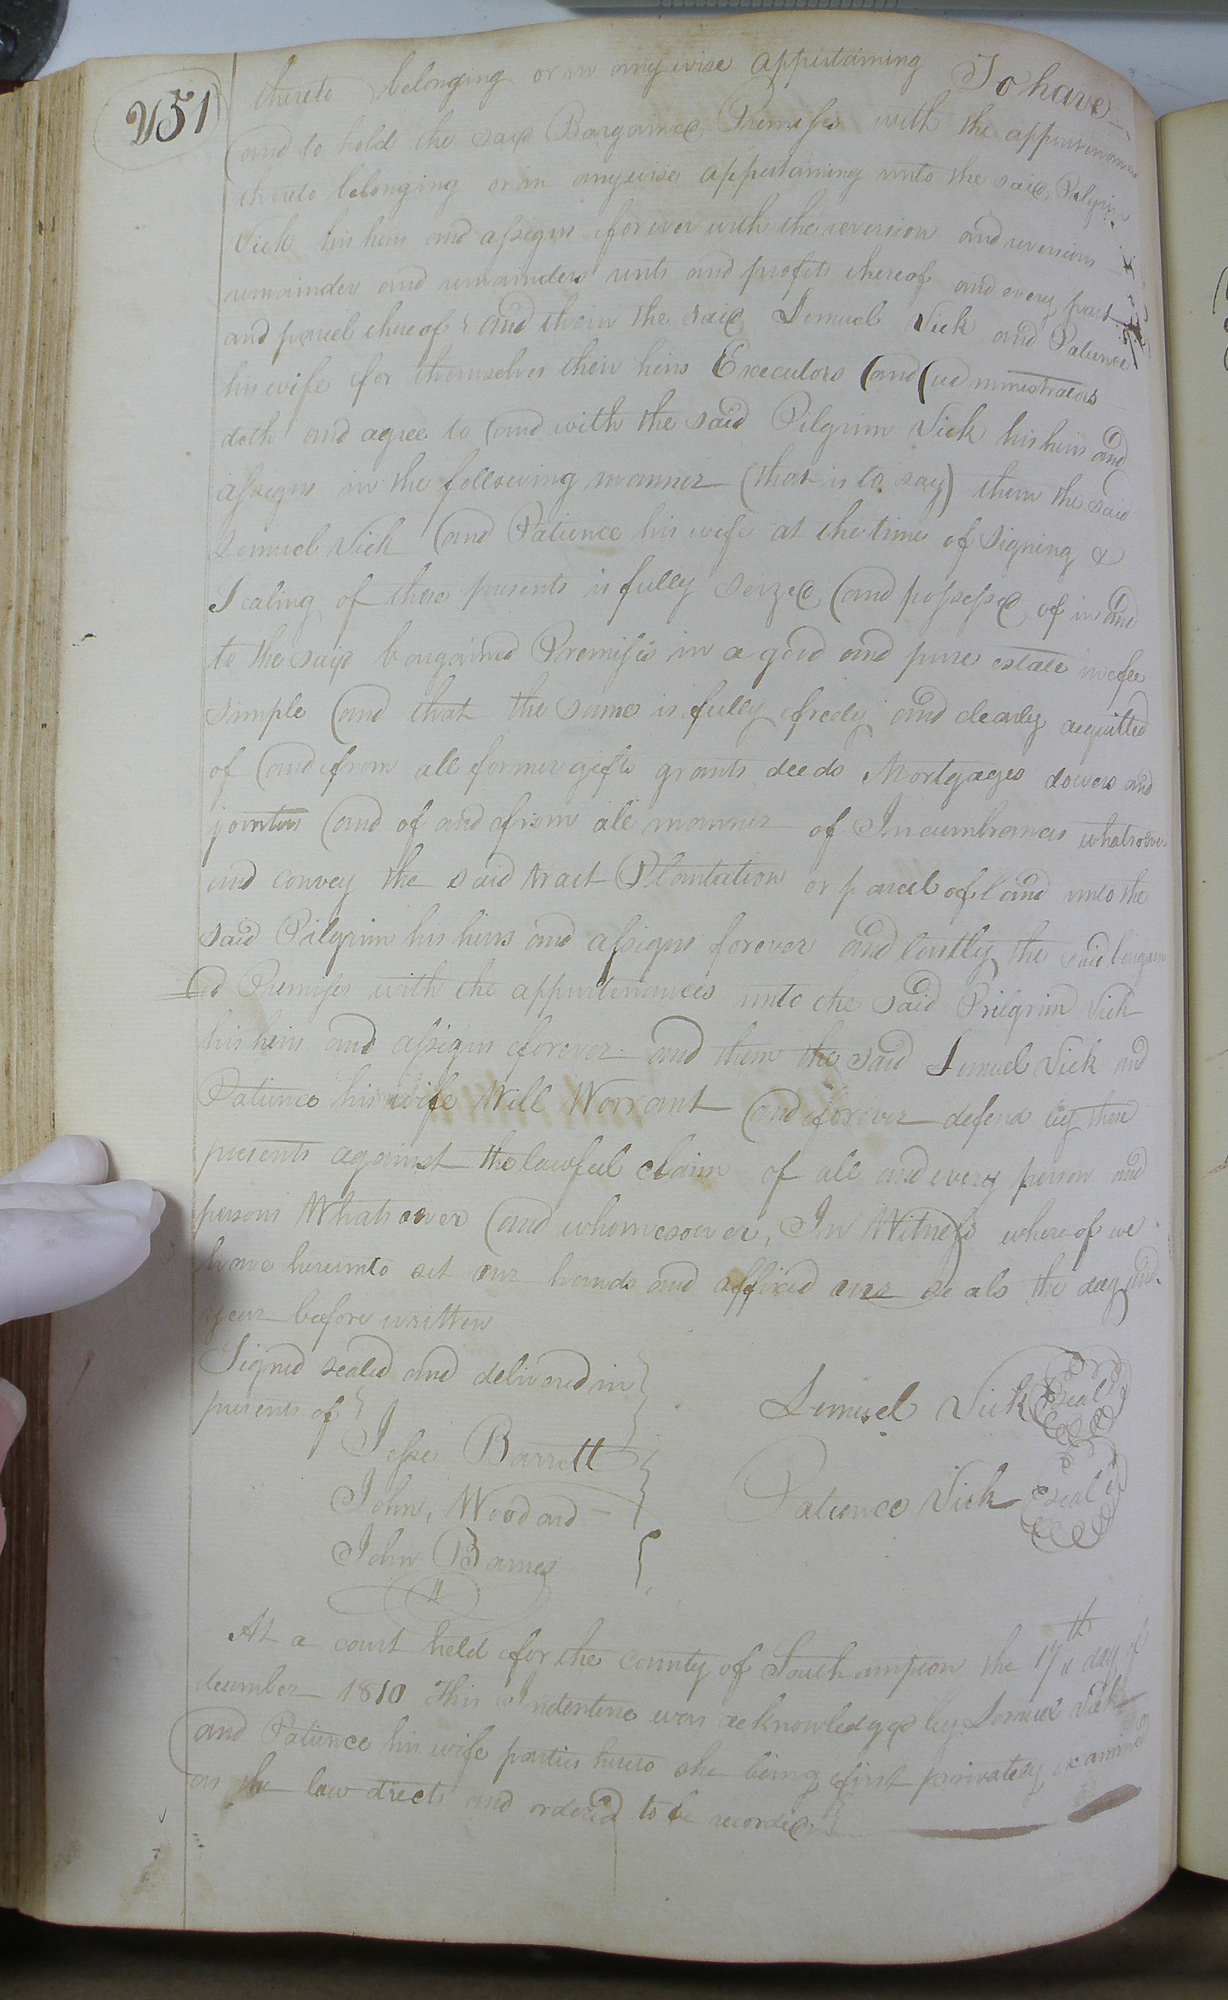 251
thereto belonging or in anywise appertaining To have
and to hold the said Bargained Premises with the appurtenances
thereto belonging or in anywise appertaining unto the said Pilgrim
Vick his heirs and assigns forever with the reversion and reversions
remainder and remainders rents and profits thereof and every part
and parcel thereof & and them the said Lemuel Vick and Patience
his wife for themselves their heirs Executors and administrators
doth and agree to and with the said Pilgrim Vick his heirs and
assigns in the following manner (that is to say) them the said
Lemuel Vick and Patience his wife at the time of Signing &
Sealing of these presents is fully seized and possessed of in and
to the said bargained Premises in a good and pure estate in fee
simple and that the same is fully freely and clearly acquitted
of and from all former gifts grants deeds Mortgages dowers and
jointers and of and from all manner of Incumbrances whatsoever
and convey the said tract Plantation or parcel of land unto the
said Pilgrim his heirs and assigns forever and lastly the said bargain
ed Premises with the appurtenances unto the said Pilgrim Vick
his heirs and assigns forever and them the said Lemuel Vick and
Patience his wife Will Warrant and forever defend by these
presents against the lawful claim of all and every person and
persons Whatsoever and whomesoever, In Witness where of we
have hereunto set our hands and affixed our seals the day and
year before written
Signed sealed and delivered in
presents of
Lemuel Vick Seal
Jesse Barrett
John, Woodard
Patience Vick Seal
John Barnes
At a court held for the county of Southampton the 17th day of
december 1810 This Indenture was acknowledged by Lemuel Vick
and Patience his wife parties hereto she being first privately examined
as the law directs and ordered to be recorded